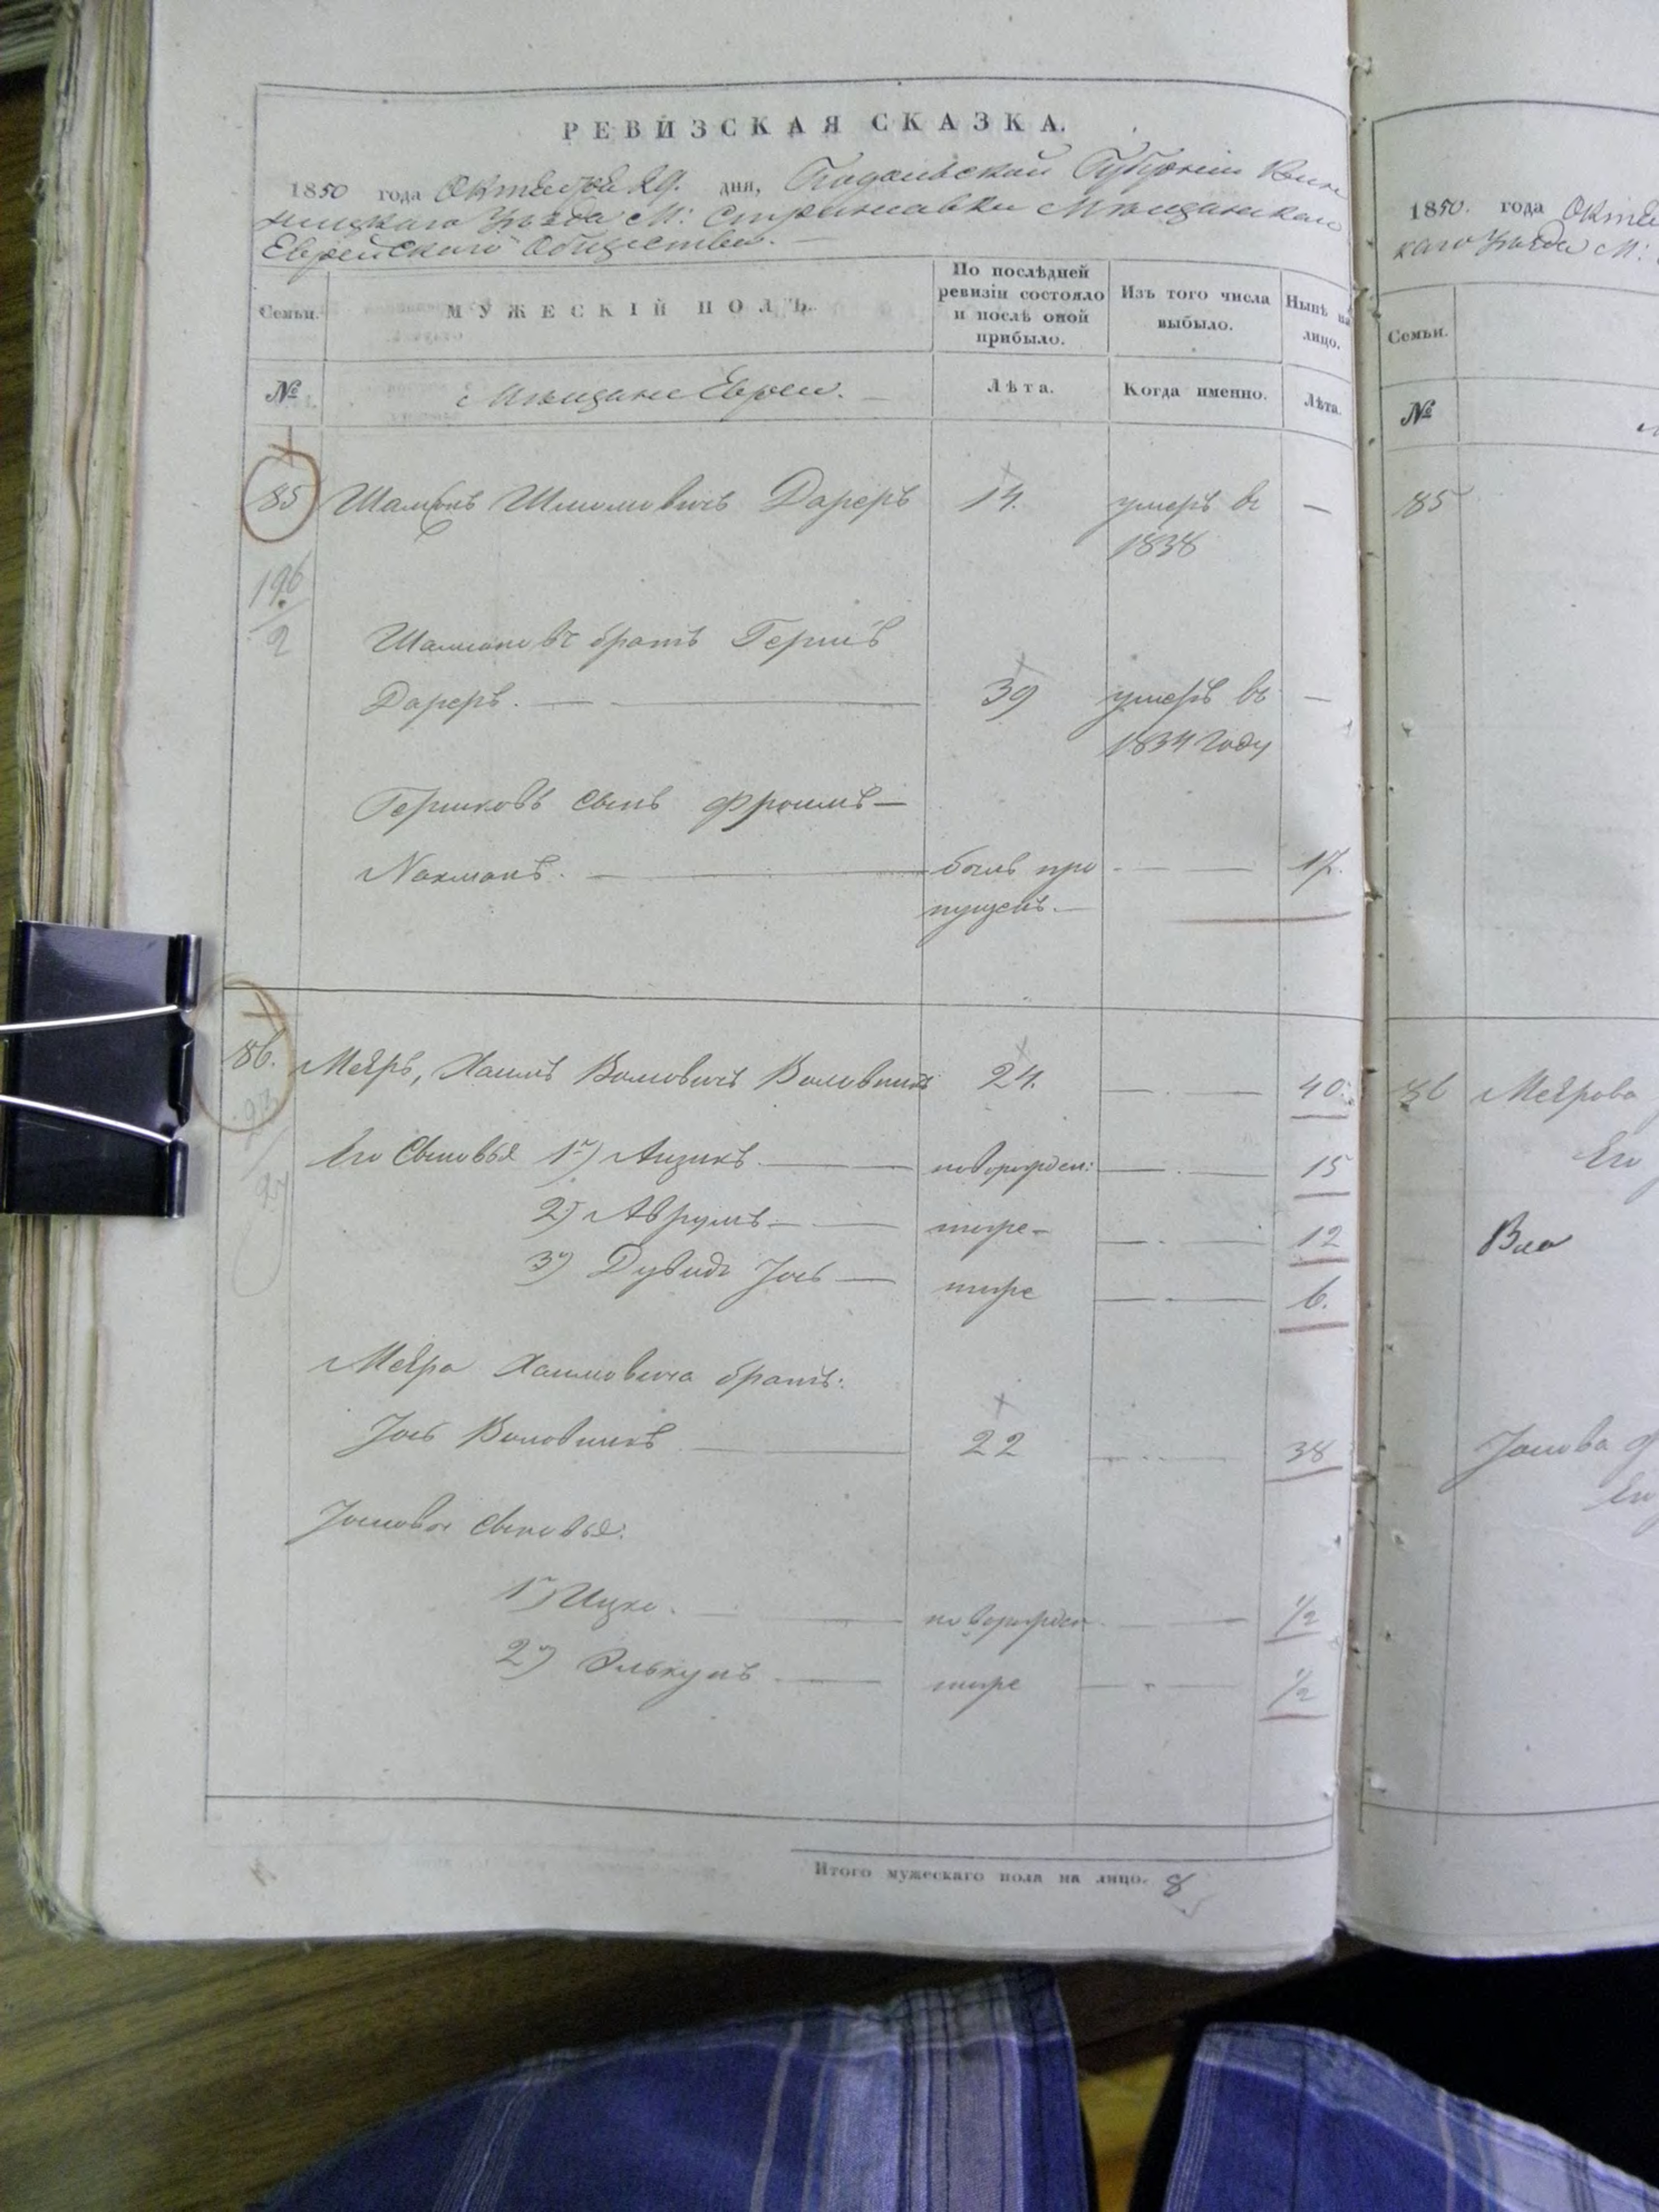 РЕВИЗСКАЯ СКАЗКА.
1850 года Октября 29. дня, Подольской Губерніи Вин
ницкаго Уѣзда М: Стрижавки Мѣщанскаго
Еврейскаго Общества.
Семьи.
МУЖЕСКІЙ ПОЛЪ.
По послѣдней ревизіи состояло и послѣ оной прибыло.
Изъ того числа выбыло.
Нынѣ на лицо.
№
Мѣщане Евреи.
Лѣта.
Когда именно.
Лѣта.
85 Шмомовичъ Дареръ 14. умеръ въ —
1838
196
2
братъ Гершъ
Дареръ. — 39 умеръ въ —
1834 году
Гершковъ сынъ Фроимъ —
Нахманъ. — былъ про — 17.
пущенъ. —
86. Меяръ, Хаимъ Воловникъ 24. — 40.
Его Сыновья 1й) Айзикъ — новорожден: — 15
2й) Аврумъ — тоже — 12
3й) Дувидъ Іось — тоже — 6.
Меяра Хаимовича братъ:
Іось Воловникъ — 22 — 38
Іосиовы сыновья:
1й) Ицко. — новорожден — 1/2
2й) Элькунъ — тоже — 1/2
Итого мужескаго пола на лицо. 8
1850. года
каго Уѣзда М:
Семьи.
№
85
86 Меярова
Его
Іосиова